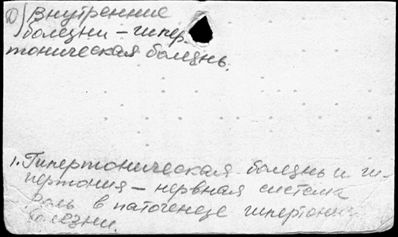 0) Внутренние
болезни – гипер
тоническая болезнь.
1. Гипертоническая болезнь и ги-
пертония – нервная система
роль в патогенезе гипертонич.
болезни.